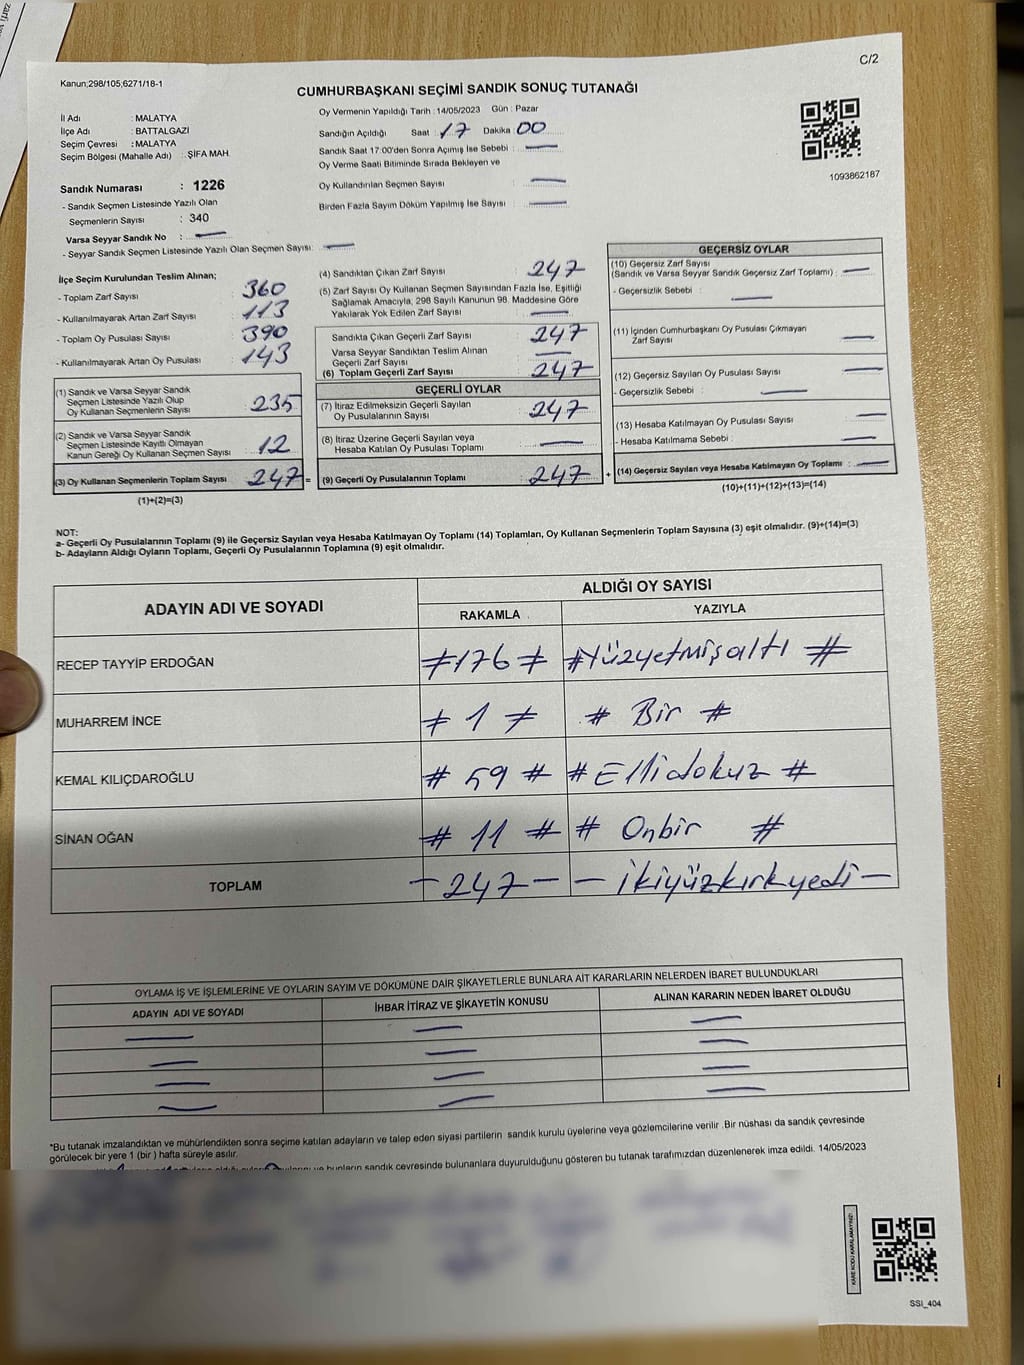 C/2
Kanun;298/105;6271/18-1
CUMHURBAŞKANI SEÇİMİ SANDIK SONUÇ TUTANAĞI
İl Adı : MALATYA
İlçe Adı : BATTALGAZİ
Seçim Çevresi : MALATYA
Seçim Bölgesi (Mahalle Adı) : ŞİFA MAH.
Oy Vermenin Yapıldığı Tarih : 14/05/2023 Gün : Pazar
Sandığın Açıldığı Saat : 17 Dakika : 00
Sandık Saat 17:00'den Sonra Açımış İse Sebebi : —
Oy Verme Saati Bitiminde Sırada Bekleyen ve
Oy Kullandırılan Seçmen Sayısı : —
Birden Fazla Sayım Döküm Yapılmış İse Sayısı : —
1093862187
Sandık Numarası : 1226
- Sandık Seçmen Listesinde Yazılı Olan
Seçmenlerin Sayısı : 340
Varsa Seyyar Sandık No : —
- Seyyar Sandık Seçmen Listesinde Yazılı Olan Seçmen Sayısı: —
İlçe Seçim Kurulundan Teslim Alınan;
- Toplam Zarf Sayısı : 360
- Kullanılmayarak Artan Zarf Sayısı : 113
- Toplam Oy Pusulası Sayısı : 390
- Kullanılmayarak Artan Oy Pusulası : 143
(1) Sandık ve Varsa Seyyar Sandık
Seçmen Listesinde Yazılı Olup
Oy Kullanan Seçmenlerin Sayısı : 235
(2) Sandık ve Varsa Seyyar Sandık
Seçmen Listesinde Kayıtlı Olmayan
Kanun Gereği Oy Kullanan Seçmen Sayısı : 12
(3) Oy Kullanan Seçmenlerin Toplam Sayısı : 247 =
(1)+(2)=(3)
(4) Sandıktan Çıkan Zarf Sayısı : 247
(5) Zarf Sayısı Oy Kullanan Seçmen Sayısından Fazla İse, Eşitliği
Sağlamak Amacıyla, 298 Sayılı Kanunun 98. Maddesine Göre
Yakılarak Yok Edilen Zarf Sayısı : —
Sandıkta Çıkan Geçerli Zarf Sayısı : 247
Varsa Seyyar Sandıktan Teslim Alınan
Geçerli Zarf Sayısı : —
(6) Toplam Geçerli Zarf Sayısı : 247
GEÇERLİ OYLAR
(7) İtiraz Edilmeksizin Geçerli Sayılan
Oy Pusulalarının Sayısı : 247
(8) İtiraz Üzerine Geçerli Sayılan veya
Hesaba Katılan Oy Pusulası Toplamı : —
(9) Geçerli Oy Pusulalarının Toplamı : 247 +
GEÇERSİZ OYLAR
(10) Geçersiz Zarf Sayısı
(Sandık ve Varsa Seyyar Sandık Geçersiz Zarf Toplamı) : —
- Geçersizlik Sebebi : —
(11) İçinden Cumhurbaşkanı Oy Pusulası Çıkmayan
Zarf Sayısı : —
(12) Geçersiz Sayılan Oy Pusulası Sayısı : —
- Geçersizlik Sebebi : —
(13) Hesaba Katılmayan Oy Pusulası Sayısı : —
- Hesaba Katılmama Sebebi : —
(14) Geçersiz Sayılan veya Hesaba Katılmayan Oy Toplamı : —
(10)+(11)+(12)+(13)=(14)
NOT:
a- Geçerli Oy Pusulalarının Toplamı (9) ile Geçersiz Sayılan veya Hesaba Katılmayan Oy Toplamı (14) Toplamları, Oy Kullanan Seçmenlerin Toplam Sayısına (3) eşit olmalıdır. (9)+(14)=(3)
b- Adayların Aldığı Oyların Toplamı, Geçerli Oy Pusulalarının Toplamına (9) eşit olmalıdır.
ADAYIN ADI VE SOYADI
ALDIĞI OY SAYISI
RAKAMLA
YAZIYLA
RECEP TAYYİP ERDOĞAN #176# #Yüzyetmişaltı #
MUHARREM İNCE # 1 # # Bir #
KEMAL KILIÇDAROĞLU # 59 # # Ellidokuz #
SİNAN OĞAN # 11 # # Onbir #
TOPLAM - 247 - - ikiyüzkırkyedi -
OYLAMA İŞ VE İŞLEMLERİNE VE OYLARIN SAYIM VE DÖKÜMÜNE DAİR ŞİKAYETLERLE BUNLARA AİT KARARLARIN NELERDEN İBARET BULUNDUKLARI
ADAYIN ADI VE SOYADI
İHBAR İTİRAZ VE ŞİKAYETİN KONUSU
ALINAN KARARIN NEDEN İBARET OLDUĞU
*Bu tutanak imzalandıktan ve mühürlendikten sonra seçime katılan adayların ve talep eden siyasi partilerin sandık kurulu üyelerine veya gözlemcilerine verilir .Bir nüshası da sandık çevresinde
görülecek bir yere 1 (bir ) hafta süreyle asılır.
ve bunların sandık çevresinde bulunanlara duyurulduğunu gösteren bu tutanak tarafımızdan düzenlenerek imza edildi. 14/05/2023
KARE KODU KARALAMAYINIZ!
SSI_404